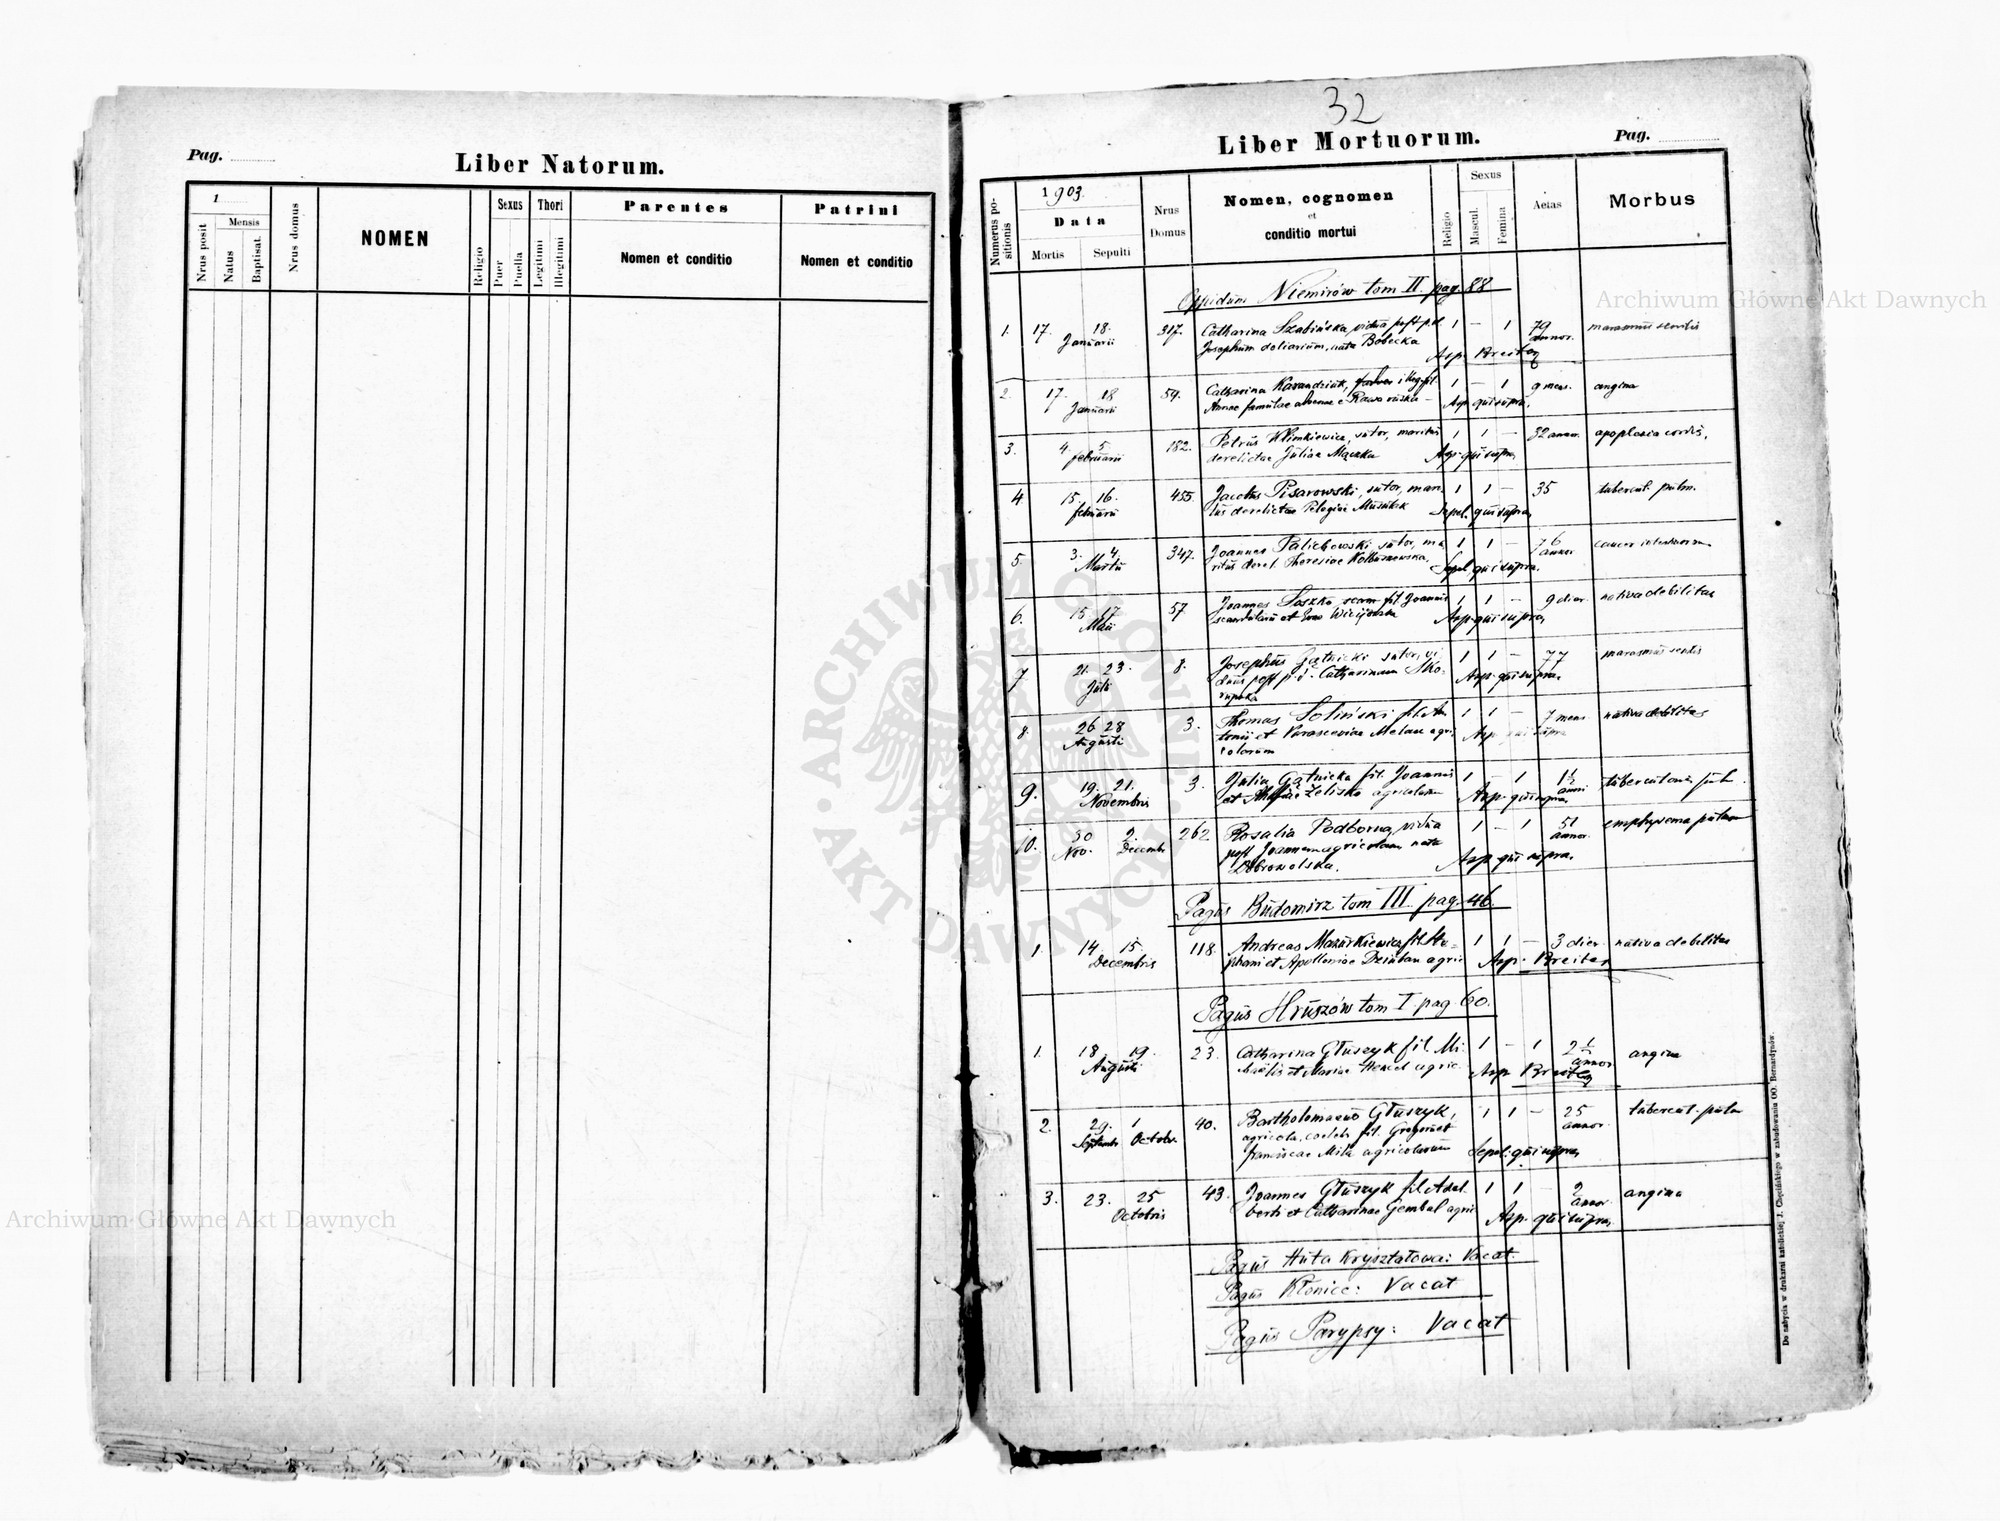 32
Pag.
Liber Natorum.
1
Nrus posit
Mensis
Natus
Baptisat.
Nrus domus
NOMEN
Religio
Sexus
Puer
Puella
Thori
Legitimi
Illegitimi
Parentes
Nomen et conditio
Patrini
Nomen et conditio
Liber Mortuorum.
Pag.
Numerus po-
sitionis
1903.
Data
Mortis
Sepulti
Nrus
Domus
Nomen, cognomen
et
conditio mortui
Religio
Sexus
Mascul.
Femina
Aetas
Morbus
Oppidum Niemirów tom II. pag. 88
1. 17. 18. 317. Catharina Szabińska vidua post p.d. 1 – 1 79 marasmus senilis
Januarii Josephum doliarium, nata Bobecka annor.
Asp. Breiter
2. 17. 18 59. Catharina Karandziuk, illeg. fil. 1 – 1 9 mens. angina
Januarii Annae famulae advenae e Rawa ruska – Asp. qui supra,
3. 4. 5. 182. Petrus Klimkiewicz, sutor, maritus 1 1 – 32 annor. apoplexia cordis,
februarii derelictae Juliae Mączka Asp. qui supra,
4 15. 16. 455. Jacobus Pisarowski, sutor, mari 1 1 – 35 tubercul. pulm.
februarii tus derelictae Pelagiae Sepel. qui supra,
5. 3. 4. 347. Joannes Palichowski sutor, ma 1 1 – 76 cancer
Martii ritus derel. Theresiae Sepel. qui supra. annor
6. 15. 17. 57. Joannes Soszka fil. Joannis 1 1 – 9 dier. nativa debilitas
Maii et Asp. qui supra,
7 21. 23. 8. Josephus Gątnicki sutor, vi 1 1 – 77 marasmus senilis
Julii duus post p. d. Catharinam Sko- Asp. qui supra.
rupska
8. 26 28 3. Thomas Soliński fil. An 1 1 – 7 mens nativa debilitas
Augusti tonii et Parasceviae Melan agri Asp. qui supra
colarum
9. 19. 21. 3. Julia Gątnicka fil. Joannis 1 – 1 1½ tuberculosis pulm.
Novembris et Żeliska agricolarum Asp. qui supra, anni
10. 30 2. 262 Rosalia Podborna, vidua 1 – 1 51 emphysema pulmon
Nov. Decembr post Joannem agricolam, nata annor.
Dobrowolska. Asp. qui supra.
Pagus Budomirz tom III pag. 46.
1. 14. 15. 118. Andreas Mazurkiewicz fil. Ste- 1 1 – 3 dier. nativa debilitas
Decembris phani et Apolloniae Dziuban agric Asp. Breiter
Pagus Hruszów tom I. pag. 60.
1. 18. 19. 23. Catharina Głuszyk fil. Mi- 1 – 1 2½ angina
Augusti chaelis et Mariae Hencel agric. annor
Asp. Breiter
2. 29. 1 40. Bartholomaeus Głuszyk, 1 1 – 25 tubercul. pulm
Septembr Octobr. agricola, coelebs fil. Gregorii et annor.
franciscae Mila agricolarum Sepel. qui supra,
3. 23. 25 43. Joannes Głuszyk fil. Adal 1 1 – 2 angina
Octobris berti et Catharinae Gembal agric annor.
Asp. qui supra,
Pagus Huta Kryształowa: Vacat.
Pagus Kłonice: Vacat
Pagus Parypsy: Vacat
Do nabycia w drukarni katolickiej J. Chęcińskiego w zabudowaniu OO. Bernardynów.
Archiwum Główne Akt Dawnych
Archiwum Główne Akt Dawnych
ARCHIWUM GŁÓWNE AKT DAWNYCH